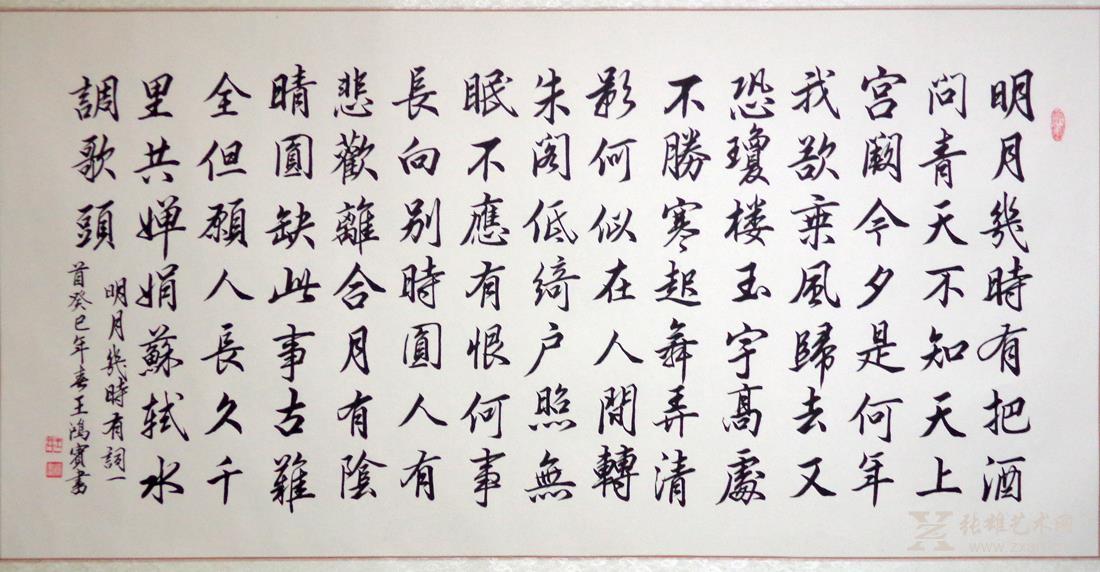 明月幾時有把酒
問青天不知天上
宫闕今夕是何年
我欲乗風歸去又
恐瓊楼玉宇髙處
不勝寒起舞弄清
影何似在人間轉
朱閣低綺户照無
眠不應有恨何事
長向别時圓人有
悲歡離合月有陰
晴圓缺此事古難
全但願人長久千
里共嬋娟蘇軾水
調歌頭
明月幾時有詞一
首癸巳年春王鴻賓書
张雄艺术网